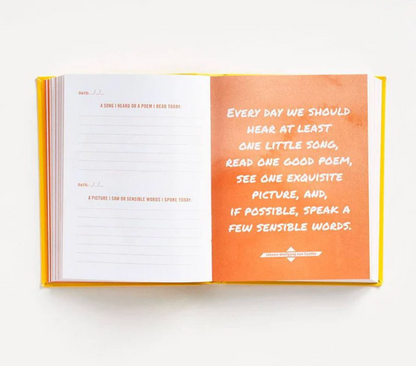 DATE: / /
A SONG I HEARD OR A POEM I READ TODAY:
DATE: / /
A PICTURE I SAW OR SENSIBLE WORDS I SPOKE TODAY:
EVERY DAY WE SHOULD
HEAR AT LEAST
ONE LITTLE SONG,
READ ONE GOOD POEM,
SEE ONE EXQUISITE
PICTURE, AND,
IF POSSIBLE, SPEAK A
FEW SENSIBLE WORDS.